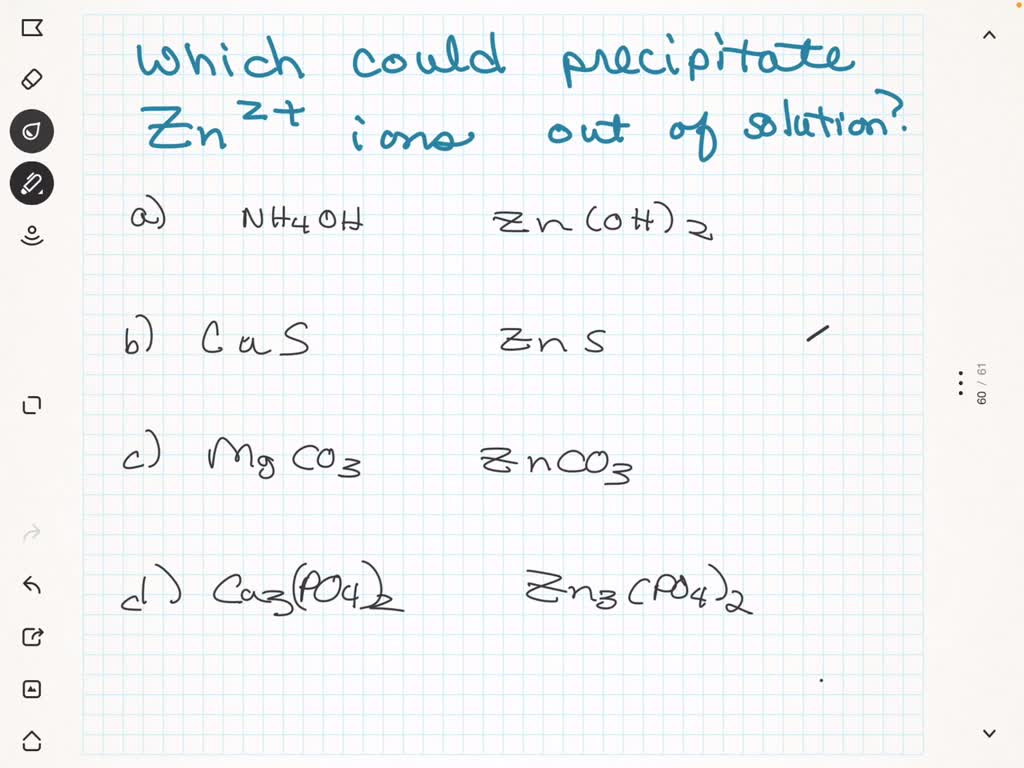 Which could precipitate
Zn²⁺ ions out of solution?
a) NH₄OH Zn(OH)₂
b) CaS ZnS
c) MgCO₃ ZnCO₃
d) Ca₃(PO₄)₂ Zn₃(PO₄)₂
60 / 61